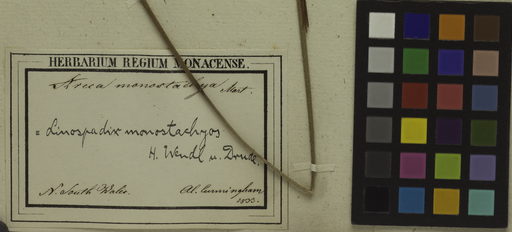 HERBARIUM REGIUM MONACENSE.
Areca monostachya Mart.
= Linospadix monostachyos
H. Wendl u. Drude.
N. South Wales. Al. Cunningham
1823.